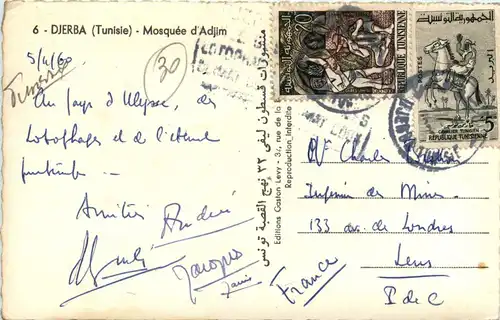 6 - DJERBA (Tunisie) - Mosquée d'Adjim
5/4/60
Tunisie
30
Au pays d'Ulysse, des
Lotophages et de l'éternel
printemps -
Amitiés André
Jacques
Editions Gaston Levy - 37, rue de la
Reproduction Interdite
منشورات قسطون ليفي ٣٣ نهج القصبة تونس
20
REPUBLIQUE TUNISIENNE
الجمهورية التونسية
POSTES
5
CAVALIER TUNISIEN
REPUBLIQUE TUNISIENNE
DJERBA
TUNISIE
Mr Charles
Ingénieur des Mines
133 av. de Londres
Lens
P de C
France